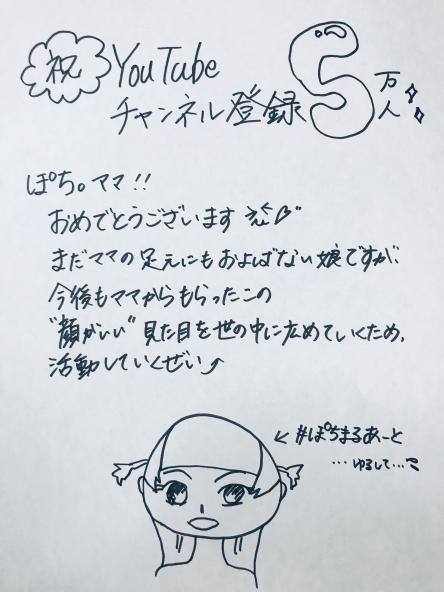 祝
YouTube
チャンネル登録 5万人
ぽち。ママ!!
おめでとうございます
まだママの足元にもおよばない娘ですが、
今後もママからもらったこの
"顔がいい"見た目を世の中に広めていくため、
活動していくぜい
← #ぽちまるあーと
…ゆるして…